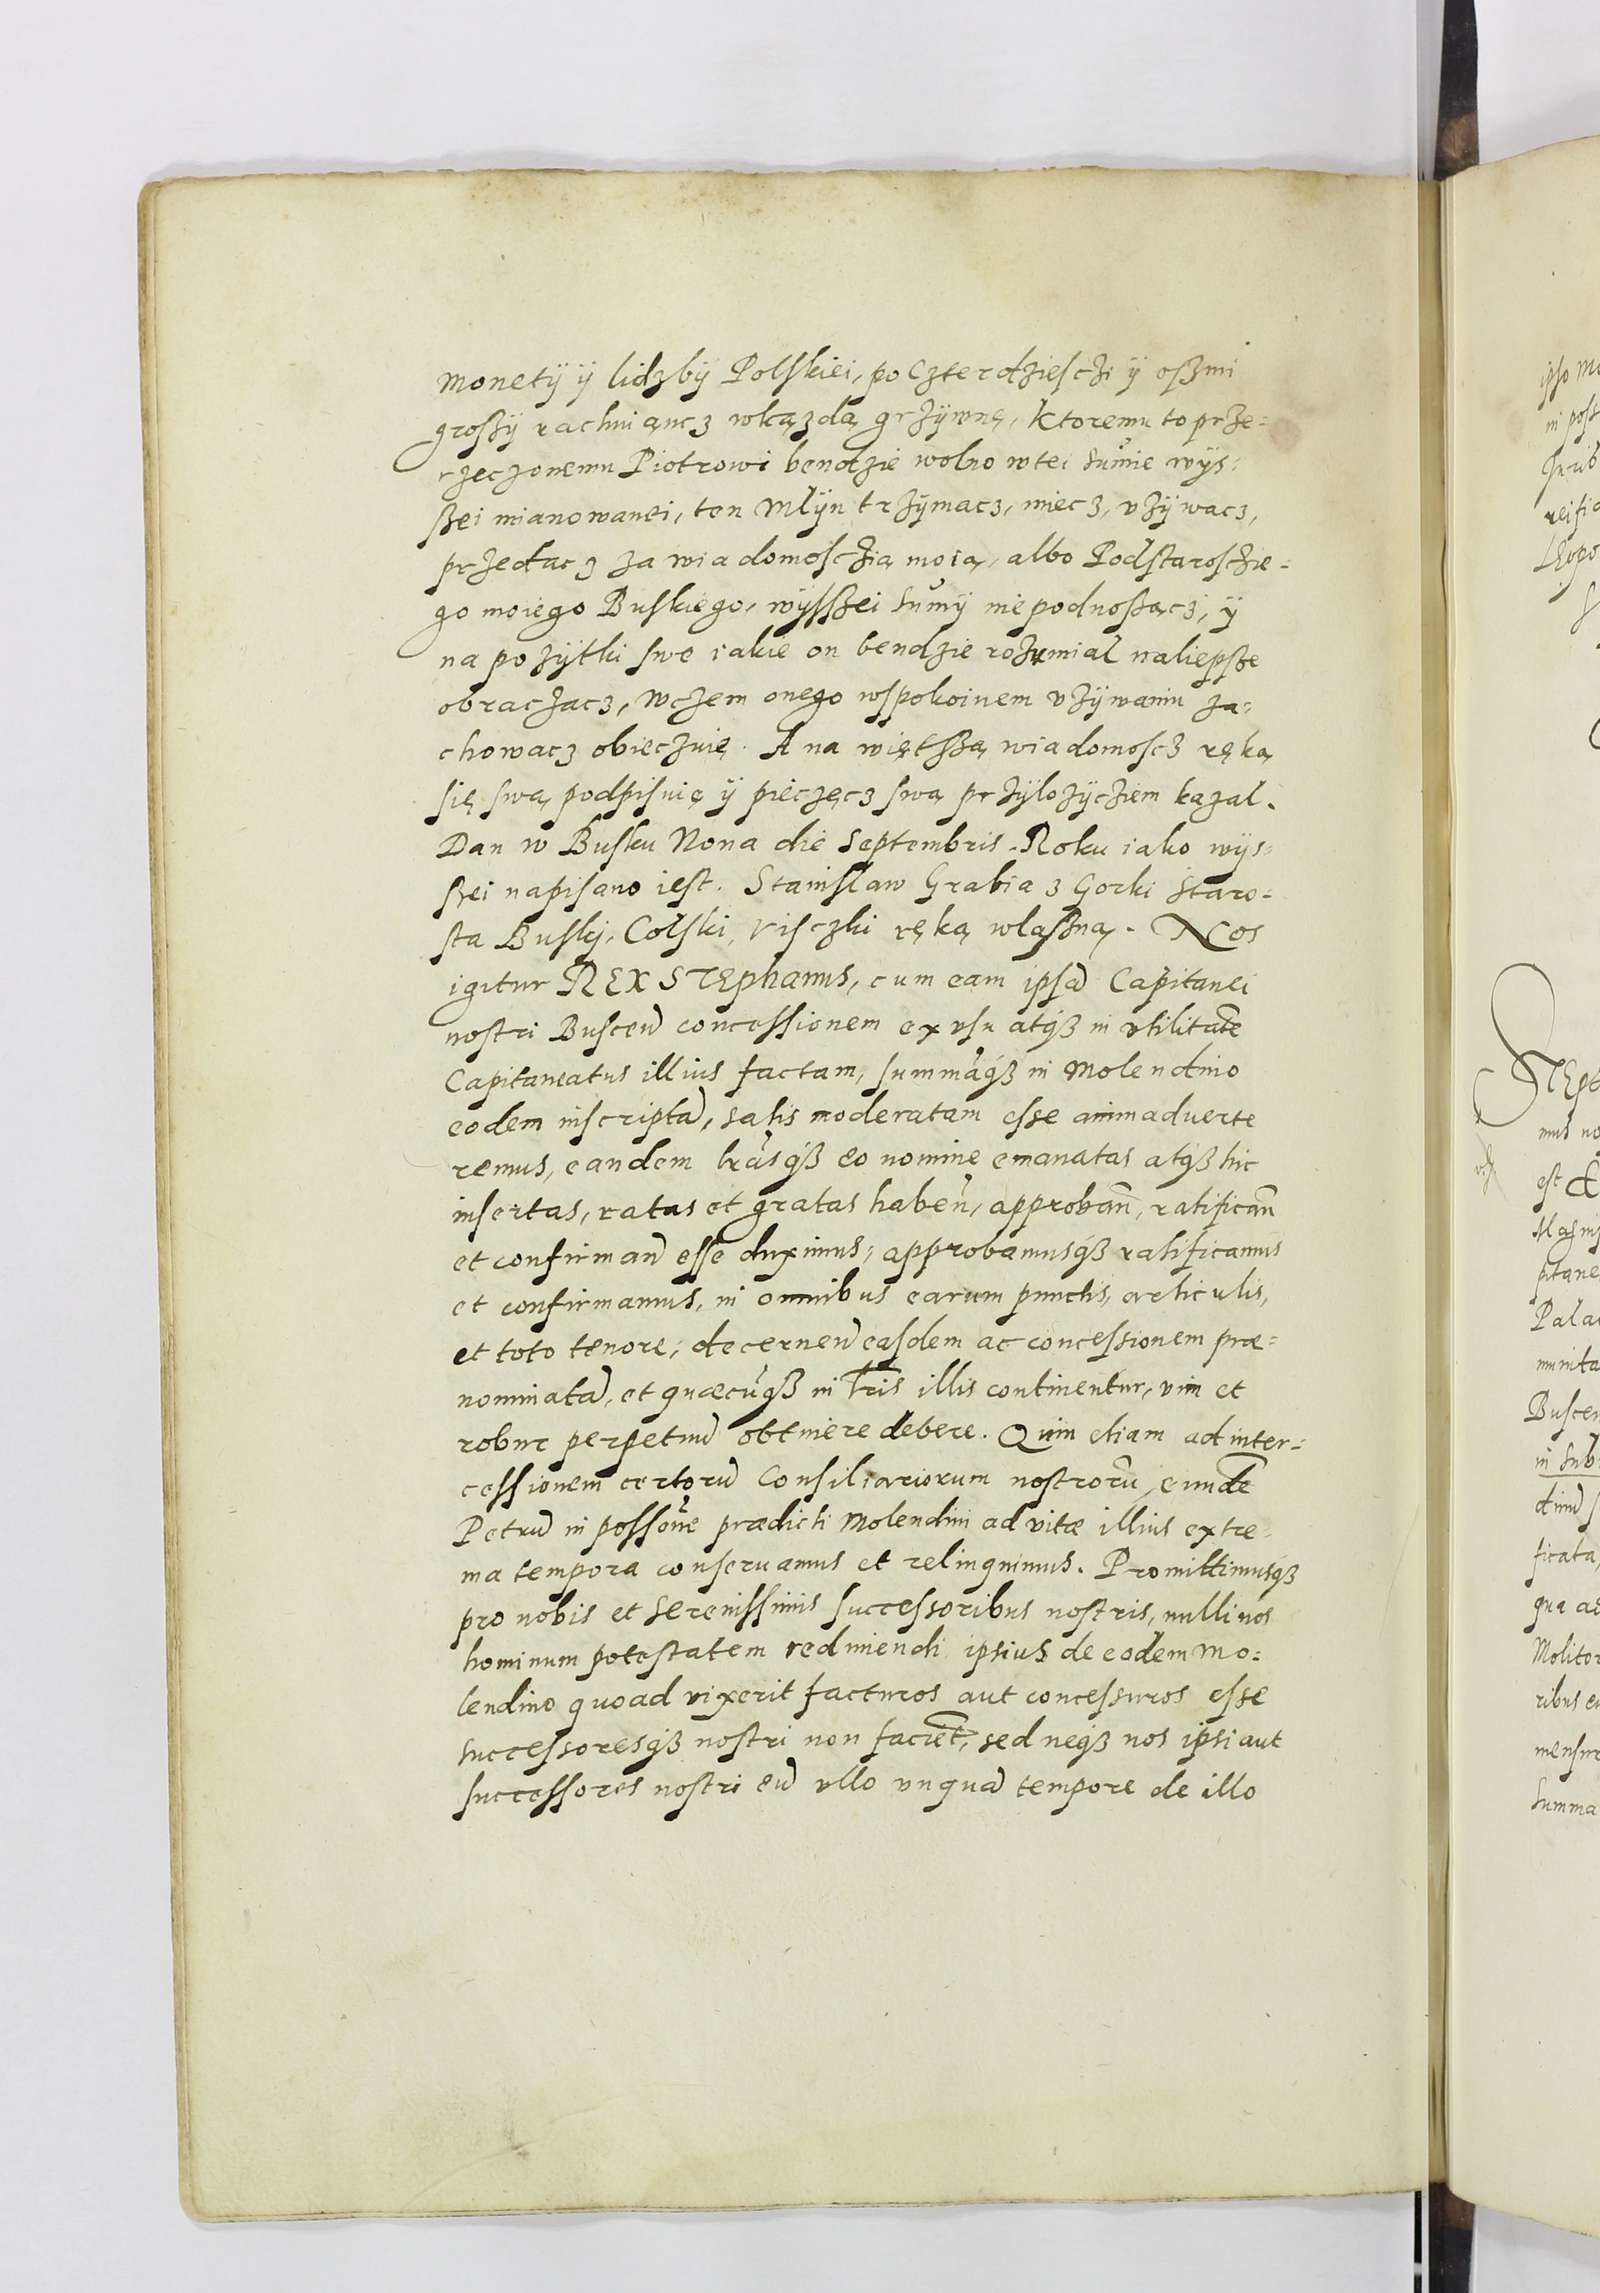 monetÿ ÿ lidzbÿ Polskiei, po Czterdzieschi ÿ oszmi
groszÿ rachuiąncz wkązdą grzÿwnę, ktoremu to prze-
rzeczonemu Piotrowi bendzie wolno wtei summie wÿs-
szei mianowanei, ten Młÿn trzÿmacz, miecz, vzÿwacz,
przedacz za wiadomosczią moią, albo Podstaroszczie-
go moiego Buskiego, wÿsszei summÿ nie podnosząci, ÿ
na pozÿtki swe iakie on bendzie rozumial naliepsze
obraczacz, wczem onego wspokoinem vzÿwaniu za-
chowacz obieczuię. A na więtszą wiadomoscz ręką
się swą podpisuię ÿ pieczęcz swą przÿlozÿcziem kazal.
Dan w Busku Nona die Septembris. Roku iako wÿs-
szei napisano iest. Stanislaw Grabia z Gorki Staro-
sta Buskj, Colski, Visczki ręką wlaszną. Nos
igitur REX STEphanus, cum eam ipsā Capitanei
nostri Buscen̄ concessionem ex vsu atqȝ in vtilitatē
Capitaneatus illius factam, summāqȝ in Molendino
eodem inscriptā, satis moderatam esse animaduerte
remus, eandem lrāsqȝ eo nomine emanatas atqȝ hic
insertas, ratas et gratas haben̄, approban̄, ratifican̄
et confirman̄ esse duximus, approbamusqȝ ratificamus
et confirmamus, in omnibus earum punctis, articulis,
et toto tenore, decernen̄ easdem ac concessionem præ-
nominatā, et quæcūqȝ in lris illis continentur, vim et
robur perpetuū obtinere debere. Quin etiam ad inter-
cessionem certorū Consiliariorum nostrorū, eundē
Petrū in possōne prædicti Molendini ad vitæ illius extre-
ma tempora conseruamus et relinquimus. Promittimusqȝ
pro nobis et Serenissimis successoribus nostris, nulli nos
hominum potestatem redimendi ipsius de eodem Mo-
lendino quoad vixerit facturos aut concessuros esse
successoresqȝ nostri non faciēt, sed neqȝ nos ipsi aut
successores nostri eū vllo vnquā tempore de illo